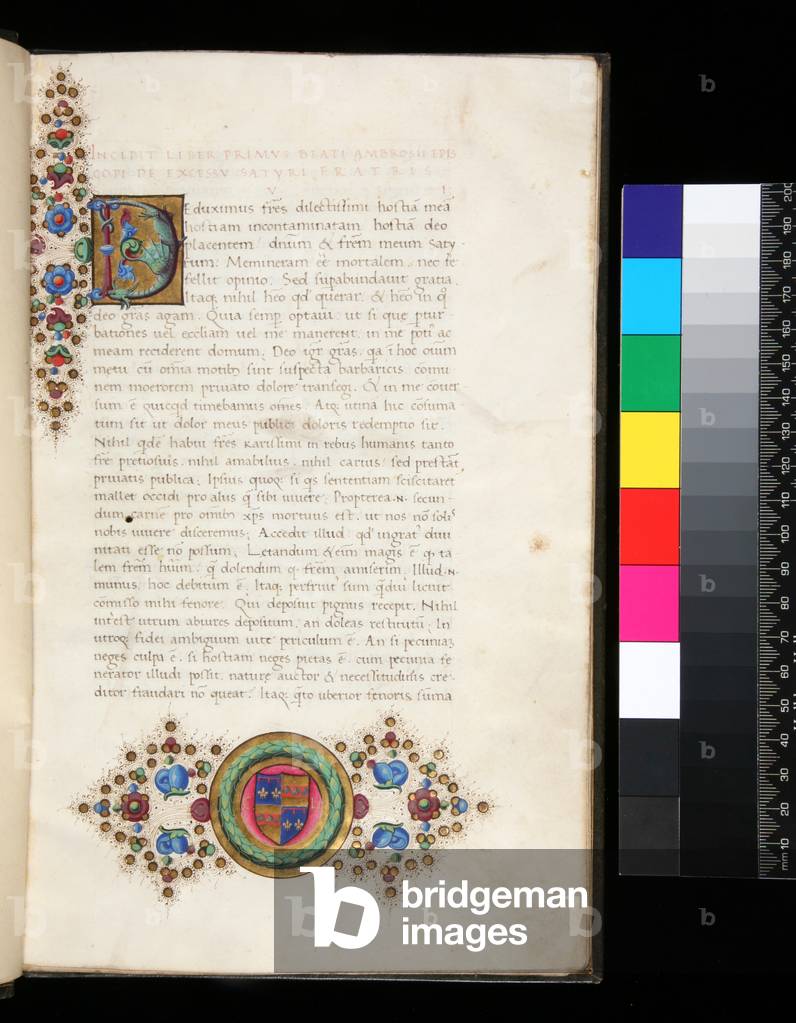 INCIPIT LIBER PRIMVS BEATI AMBROSII EPIS
COPI DE EXCESSV SATYRI FRATRIS
V I:
Eduximus fr̃es dilectissimi hostiã meã
hostiam incontaminatam hostiã deo
placentem dñum & fr̃em meum Saty-
rum. Memineram eẽ mortalem. nec fe
fellit opinio. Sed supabundauit gratia.
Itaq; nihil heo qd querar. & heo in q̃
deo gr̃as agam. Quia semp optaui. ut si que ptur
bationes uel eccliam uel me manerent. in me poti᾿ ac
meam reciderent domum. Deo igr̃ gr̃as. qa i hoc oium
metu cũ om̃ia motib; sint suspecta barbaricis. comu
nem moerorem priuato dolore transegi. & in me
sum ẽ quicqd timebamus om̃es. Atq; utinã hic cõsuma
tum sit ut dolor meus publici doloris redemptio sit.
Nihil qdẽ habui fr̃es karissimi in rebus humanis tanto
fr̃e pretiosius. nihil amabilius. nihil carius. sed prestãt
priuatis publica. Ipsius quoq; si qs sententiam sciscitaret
mallet occidi pro aliis q̃ sibi uiuere. Propterea .n. secun-
dum carnẽ pro omib; xp̃s mortuus est. ut nos nõ solis
nobis uiuere disceremus. Accedit illud qd ingrat᾿ diui
nitati esse nõ possum. Letandum &eim magis ẽ q ta
lem fr̃em hũim. q̃ dolendum q fr̃em amiserim. Illud .n.
munus. hoc debitum ẽ. Itaq; perfruit᾿ sum qdiu licuit
cõmisso mihi fenore. Qui deposuit pignus recepit. Nihil
int᾿est utrum abiures depositum. an doleas restitutũ. In
utroq; fidei ambiguum uite periculum ẽ. An si pecuniaz
neges culpa ẽ. si hostiam neges pietas ẽ. cum pecunia fe
nerator illudi possit. nature auctor & necessitudinis cre-
ditor fraudari nõ queat. Itaq; q̃to uberior fenoris suma
bridgeman
images
mm 10 20 30 40 50 60 70 80 90 100 110 120 130 140 150 160 170 180 190 200